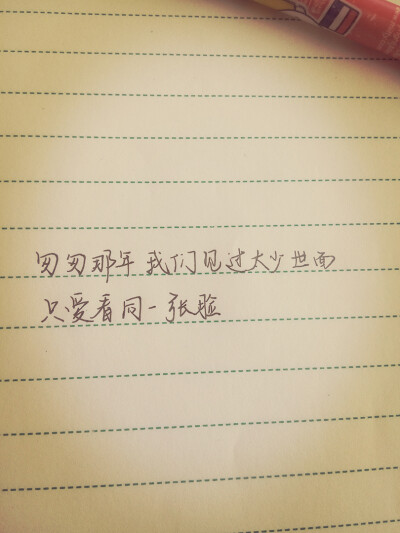 匆匆那年我们见过太少世面
只爱看同一张脸